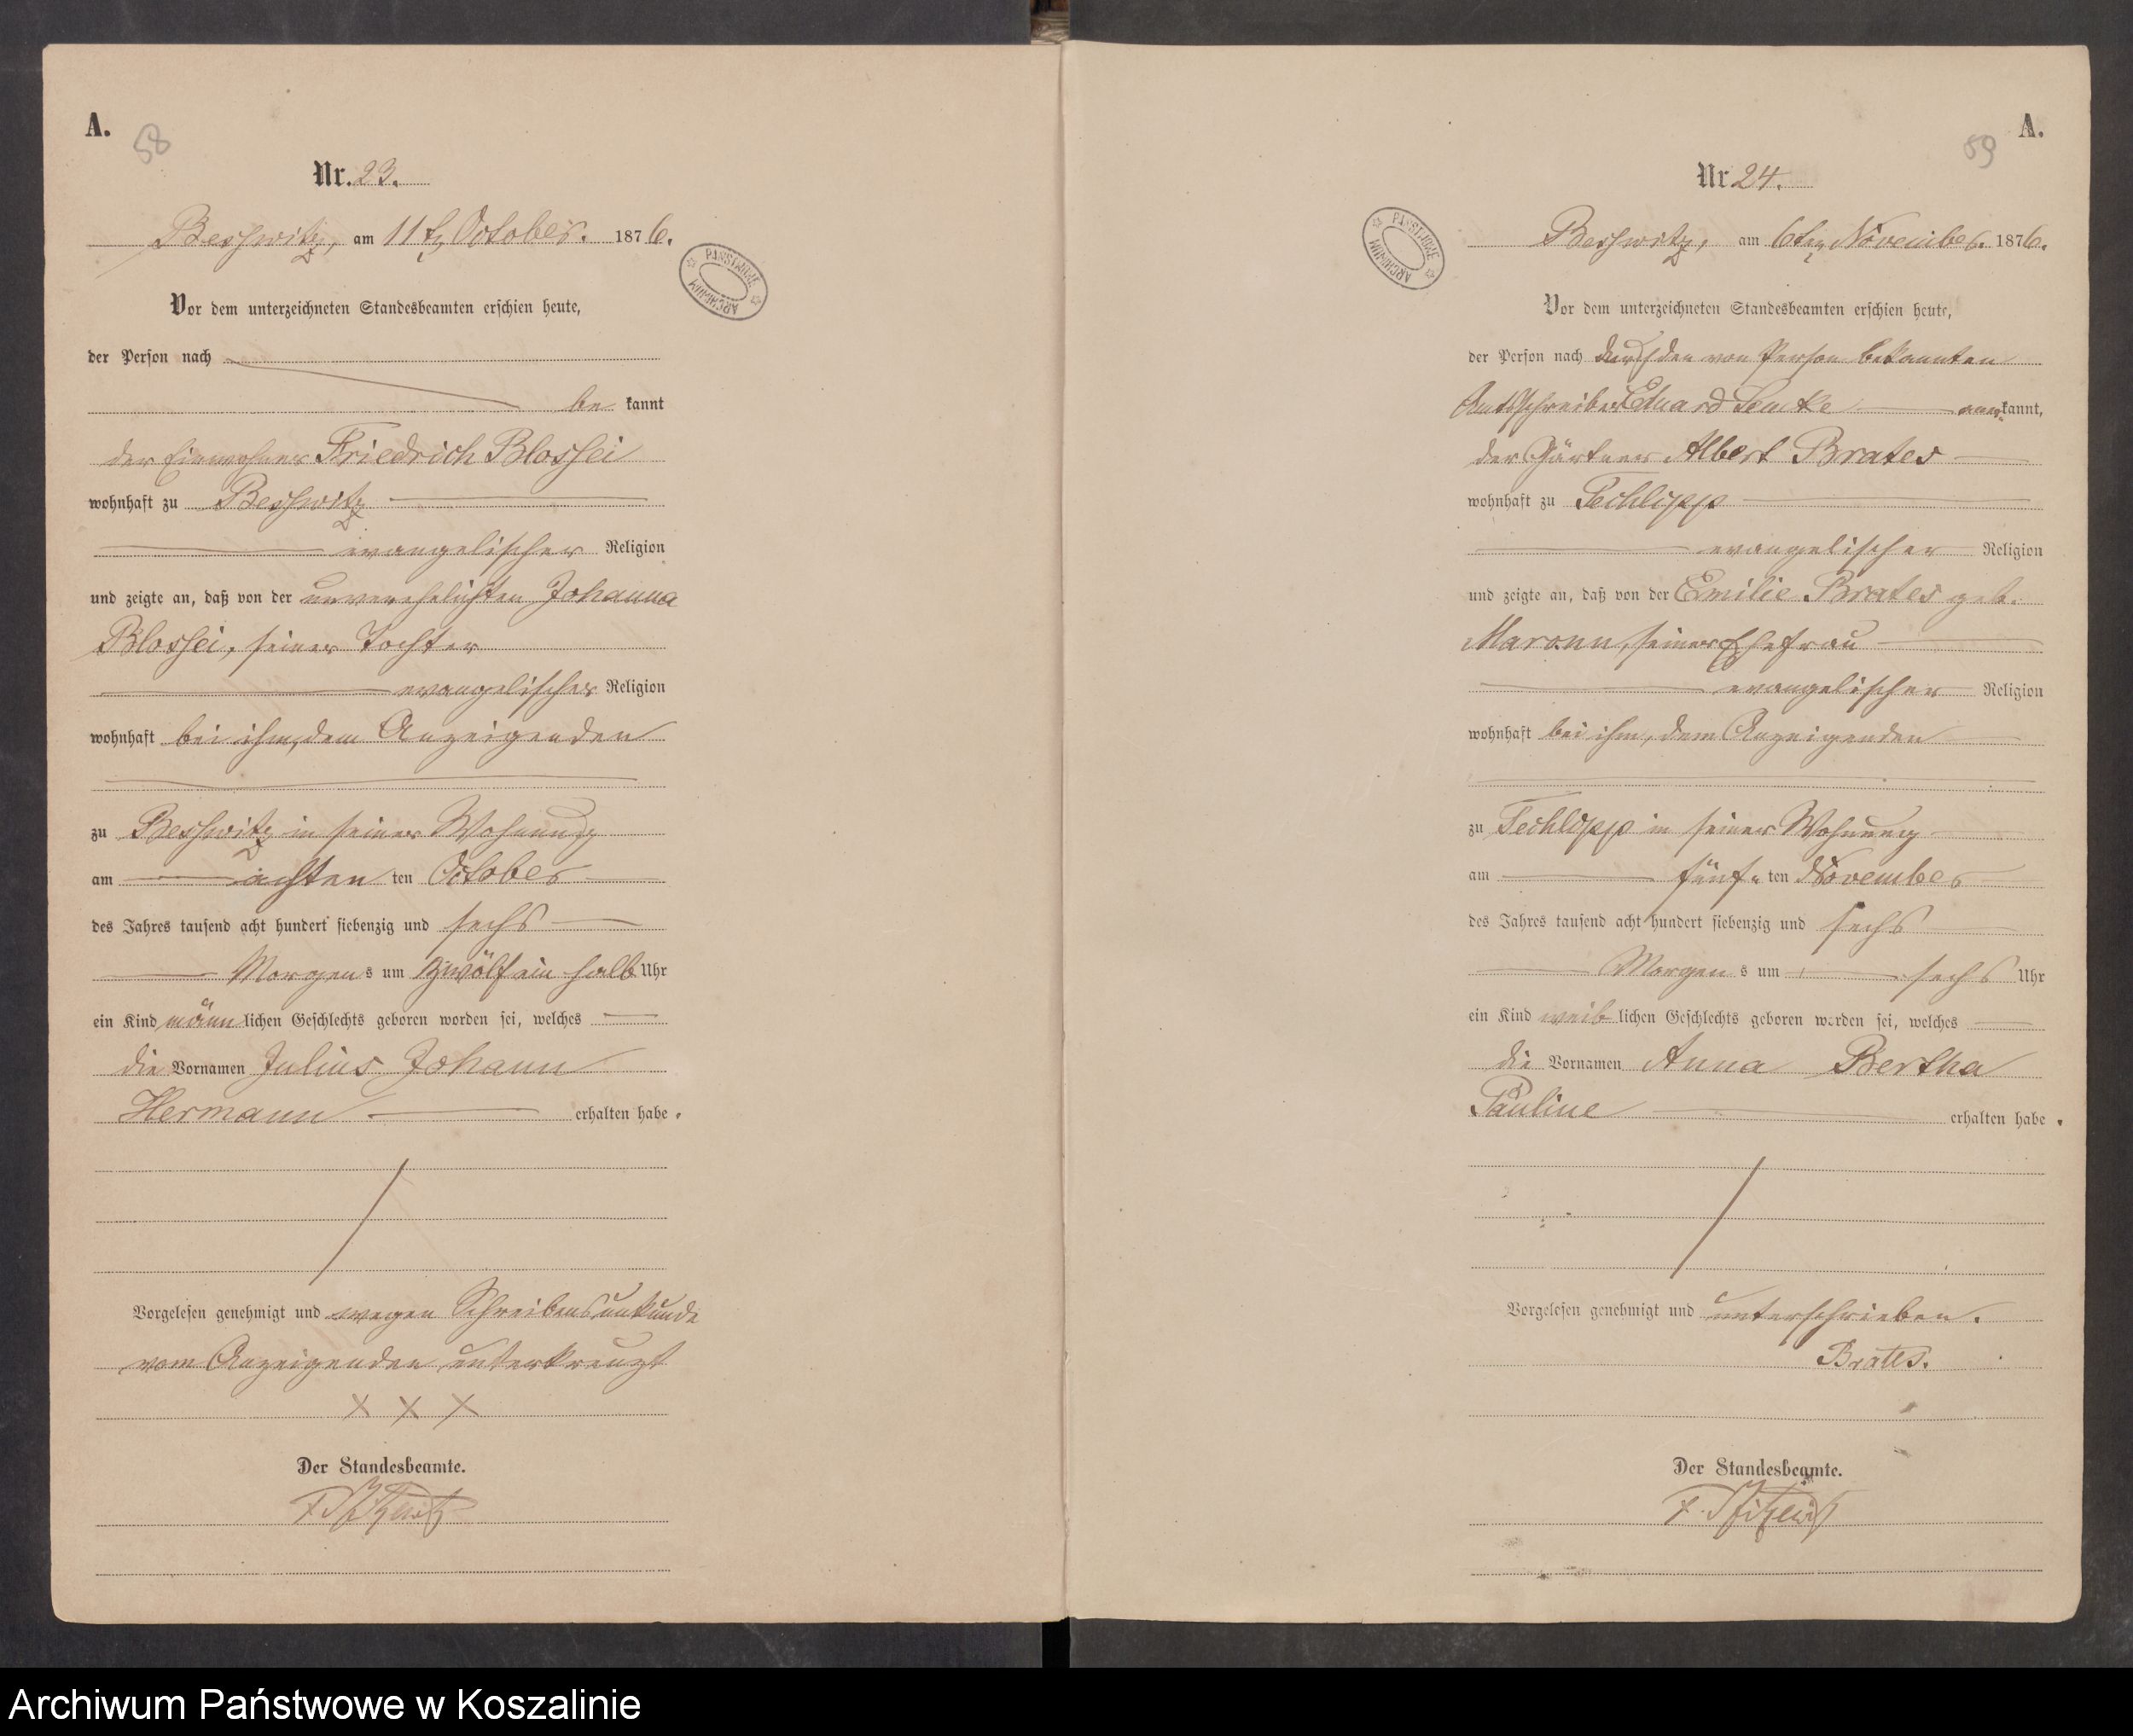 A.
58
Nr. 23.
Besswitz, am 11t October. 1876.
PAŃSTWOWE ARCHIWUM
Vor dem unterzeichneten Standesbeamten erschien heute,
der Person nach
be kannt
der Einwohner Friedrich Blossei
wohnhaft zu Besswitz
evangelischer Religion
und zeigte an, daß von der unverehelichten Johanna
Blossei, seiner Tochter
evangelischer Religion
wohnhaft bei ihm, dem Anzeigenden
zu Besswitz in seiner Wohnung
am achten ten October
des Jahres tausend acht hundert siebenzig und sechs
Morgen s um zwölf ein halb Uhr
ein Kind männ lichen Geschlechts geboren worden sei, welches
die Vornamen Julius Johann
Hermann erhalten habe.
Vorgelesen genehmigt und wegen Schreibensunkunde
vom Anzeigenden unterkreuzt
X X X
Der Standesbeamte.
A.
59
Nr 24.
Besswitz, am 6ten November. 1876.
PAŃSTWOWE ARCHIWUM
Vor dem unterzeichneten Standesbeamten erschien heute,
der Person nach durch den von Person bekannten
Amtsschreiber Eduard Lemke aner kannt,
der Gärtner Albert Brates
wohnhaft zu Techlipp
evangelischer Religion
und zeigte an, daß von der Emilie Brates geb.
Maronn, seiner Ehefrau
evangelischer Religion
wohnhaft bei ihm, dem Anzeigenden
zu Techlipp in seiner Wohnung
am fünf ten November
des Jahres tausend acht hundert siebenzig und sechs
Morgen s um sechs Uhr
ein Kind weib lichen Geschlechts geboren worden sei, welches
die Vornamen Anna Bertha
Pauline erhalten habe.
Vorgelesen genehmigt und unterschrieben.
Brates.
Der Standesbeamte.
Archiwum Państwowe w Koszalinie